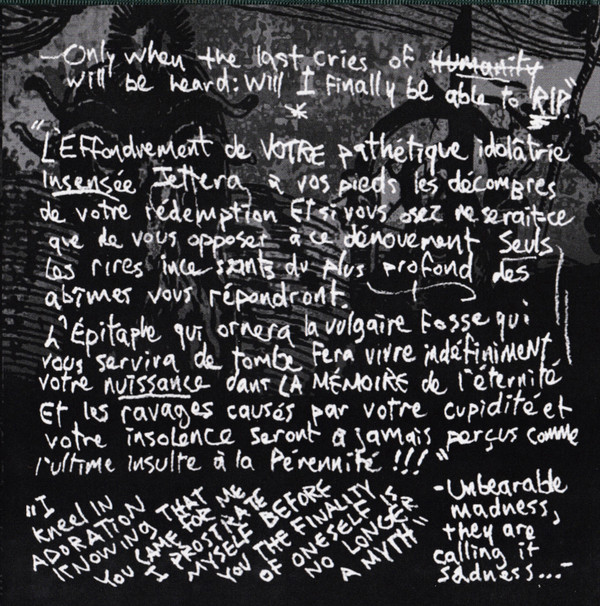 —Only when the last cries of Humanity
will be heard: Will I finally be able to RIP"
*
"L'Effondrement de VOTRE pathétique idolâtrie
insensée Jettera à vos pieds les décombres
de votre rédemption Et si vous osez ne serait-ce
que de vous opposer à ce dénouement Seuls
Les rires incessants du plus profond des
abîmes vous répondront.
L'Épitaphe qui ornera la vulgaire Fosse qui
vous servira de tombe Fera vivre indéfiniment
votre nuissance dans LA MÉMOIRE de l'éternité
Et les ravages causés par votre cupidité et
votre insolence seront a jamais perçus comme
l'ultime insulte à la Pérennité !!!"
"I
KNEEL IN
ADORATION
KNOWING THAT
YOU CAME FOR ME
I PROSTRATE
MYSELF BEFORE
YOU THE FINALITY
OF ONESELF IS
NO LONGER
A MYTH"
-Unbearable
madness,
they are
calling it
sadness...-